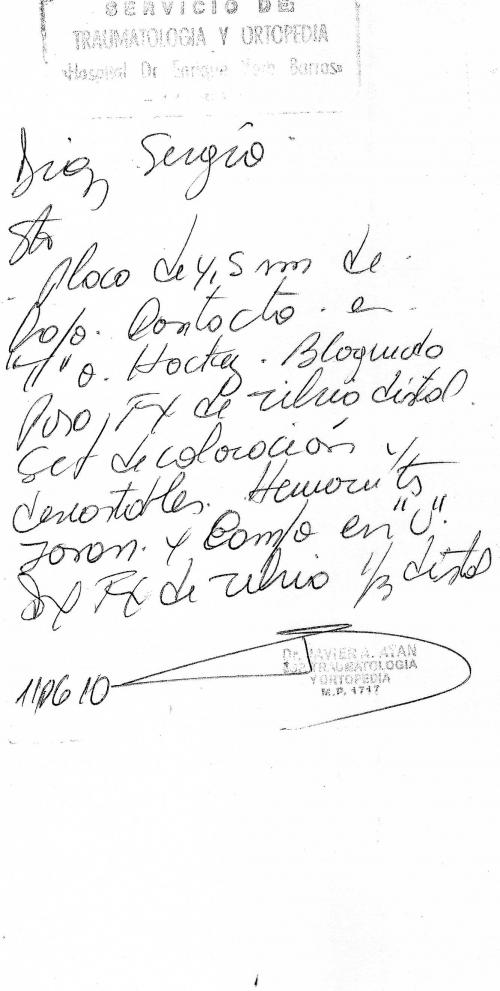 SERVICIO DE
TRAUMATOLOGIA Y ORTOPEDIA
«Hospital Dr Enrique Barros»
Diaz, Sergio
Sto
Placa de 4,5 mm de
Bajo Contacto en
"T" o Hockey. Bloqueado
para Fx de tibia distal.
Set de colocación y
descartables.
y Campo en "U".
Dx Fx de tibia 1/3 distal
11/06/10
Dr. JAVIER A. AYAN
TRAUMATOLOGIA
Y ORTOPEDIA
M.P. 1717